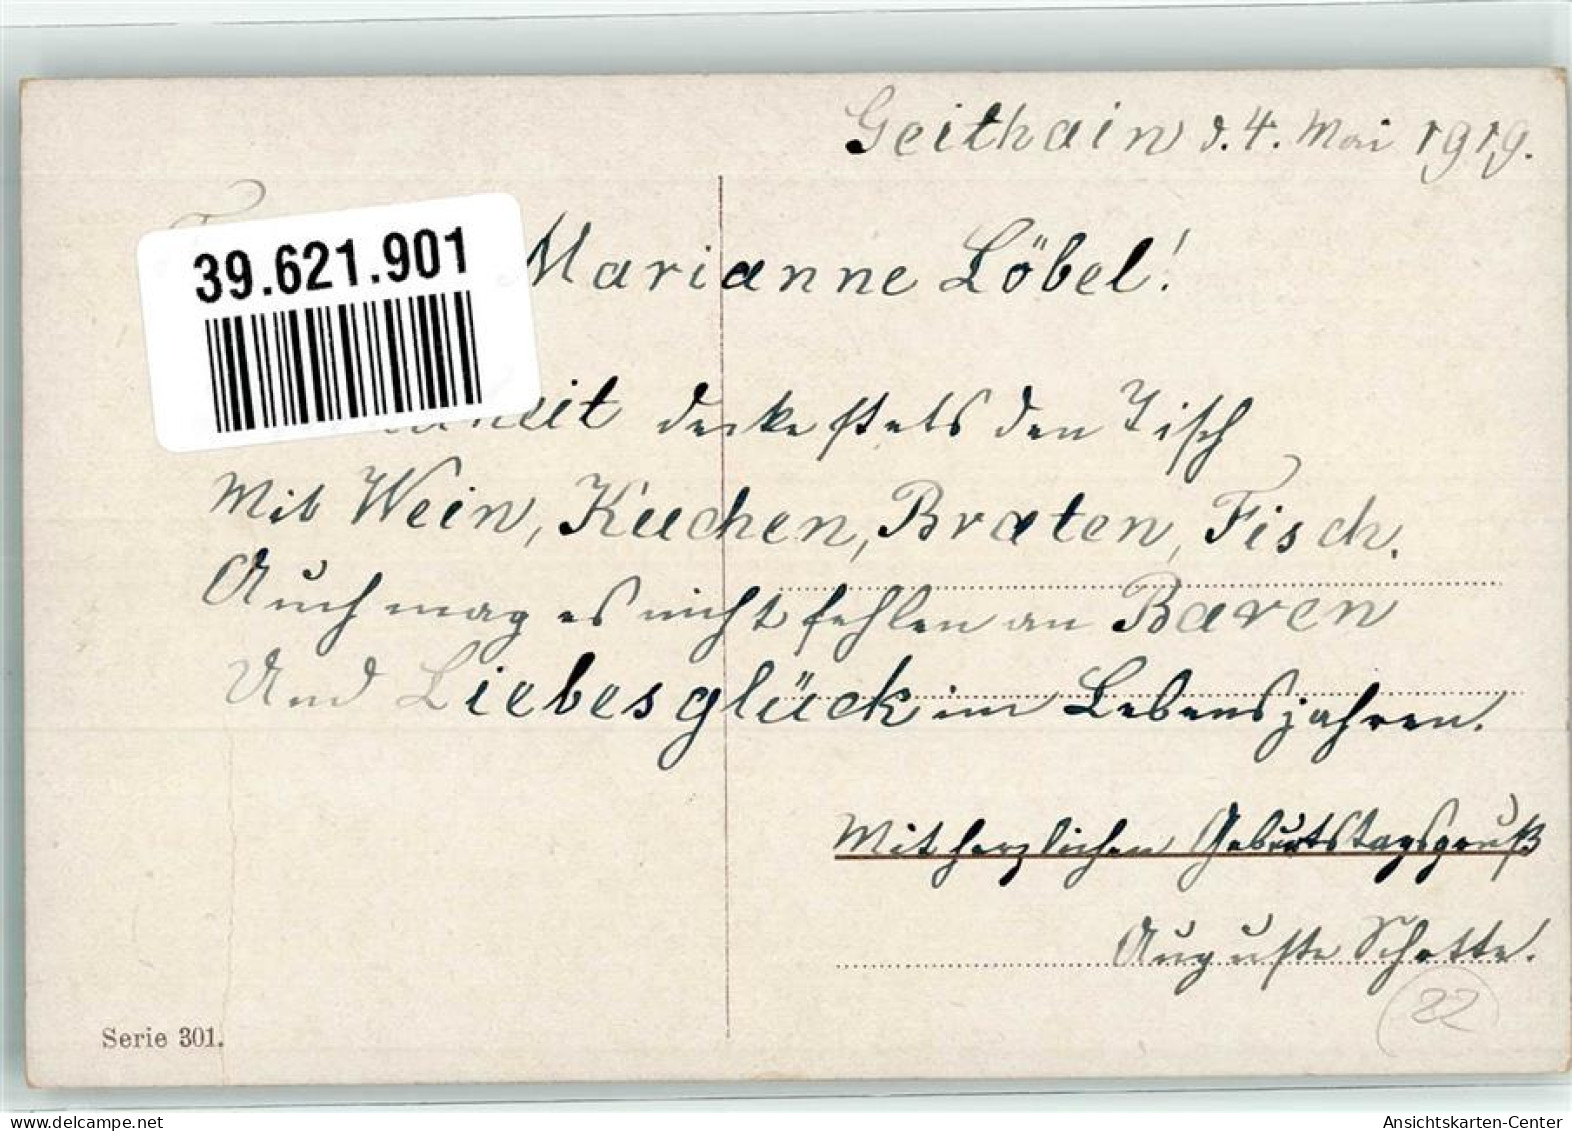 Geithain d. 4. Mai 1919.
39.621.901
Marianne Löbel!
heit decke stets den Tisch
Mit Wein, Kuchen, Braten, Fisch.
Auch mag es nicht fehlen an Baren
Und Liebesglück im Lebensjahren.
Mit herzlichen Geburtstagsgruß
Auguste Schotte.
22
Serie 301.
oldthing.de
Ansichtskarten-Center